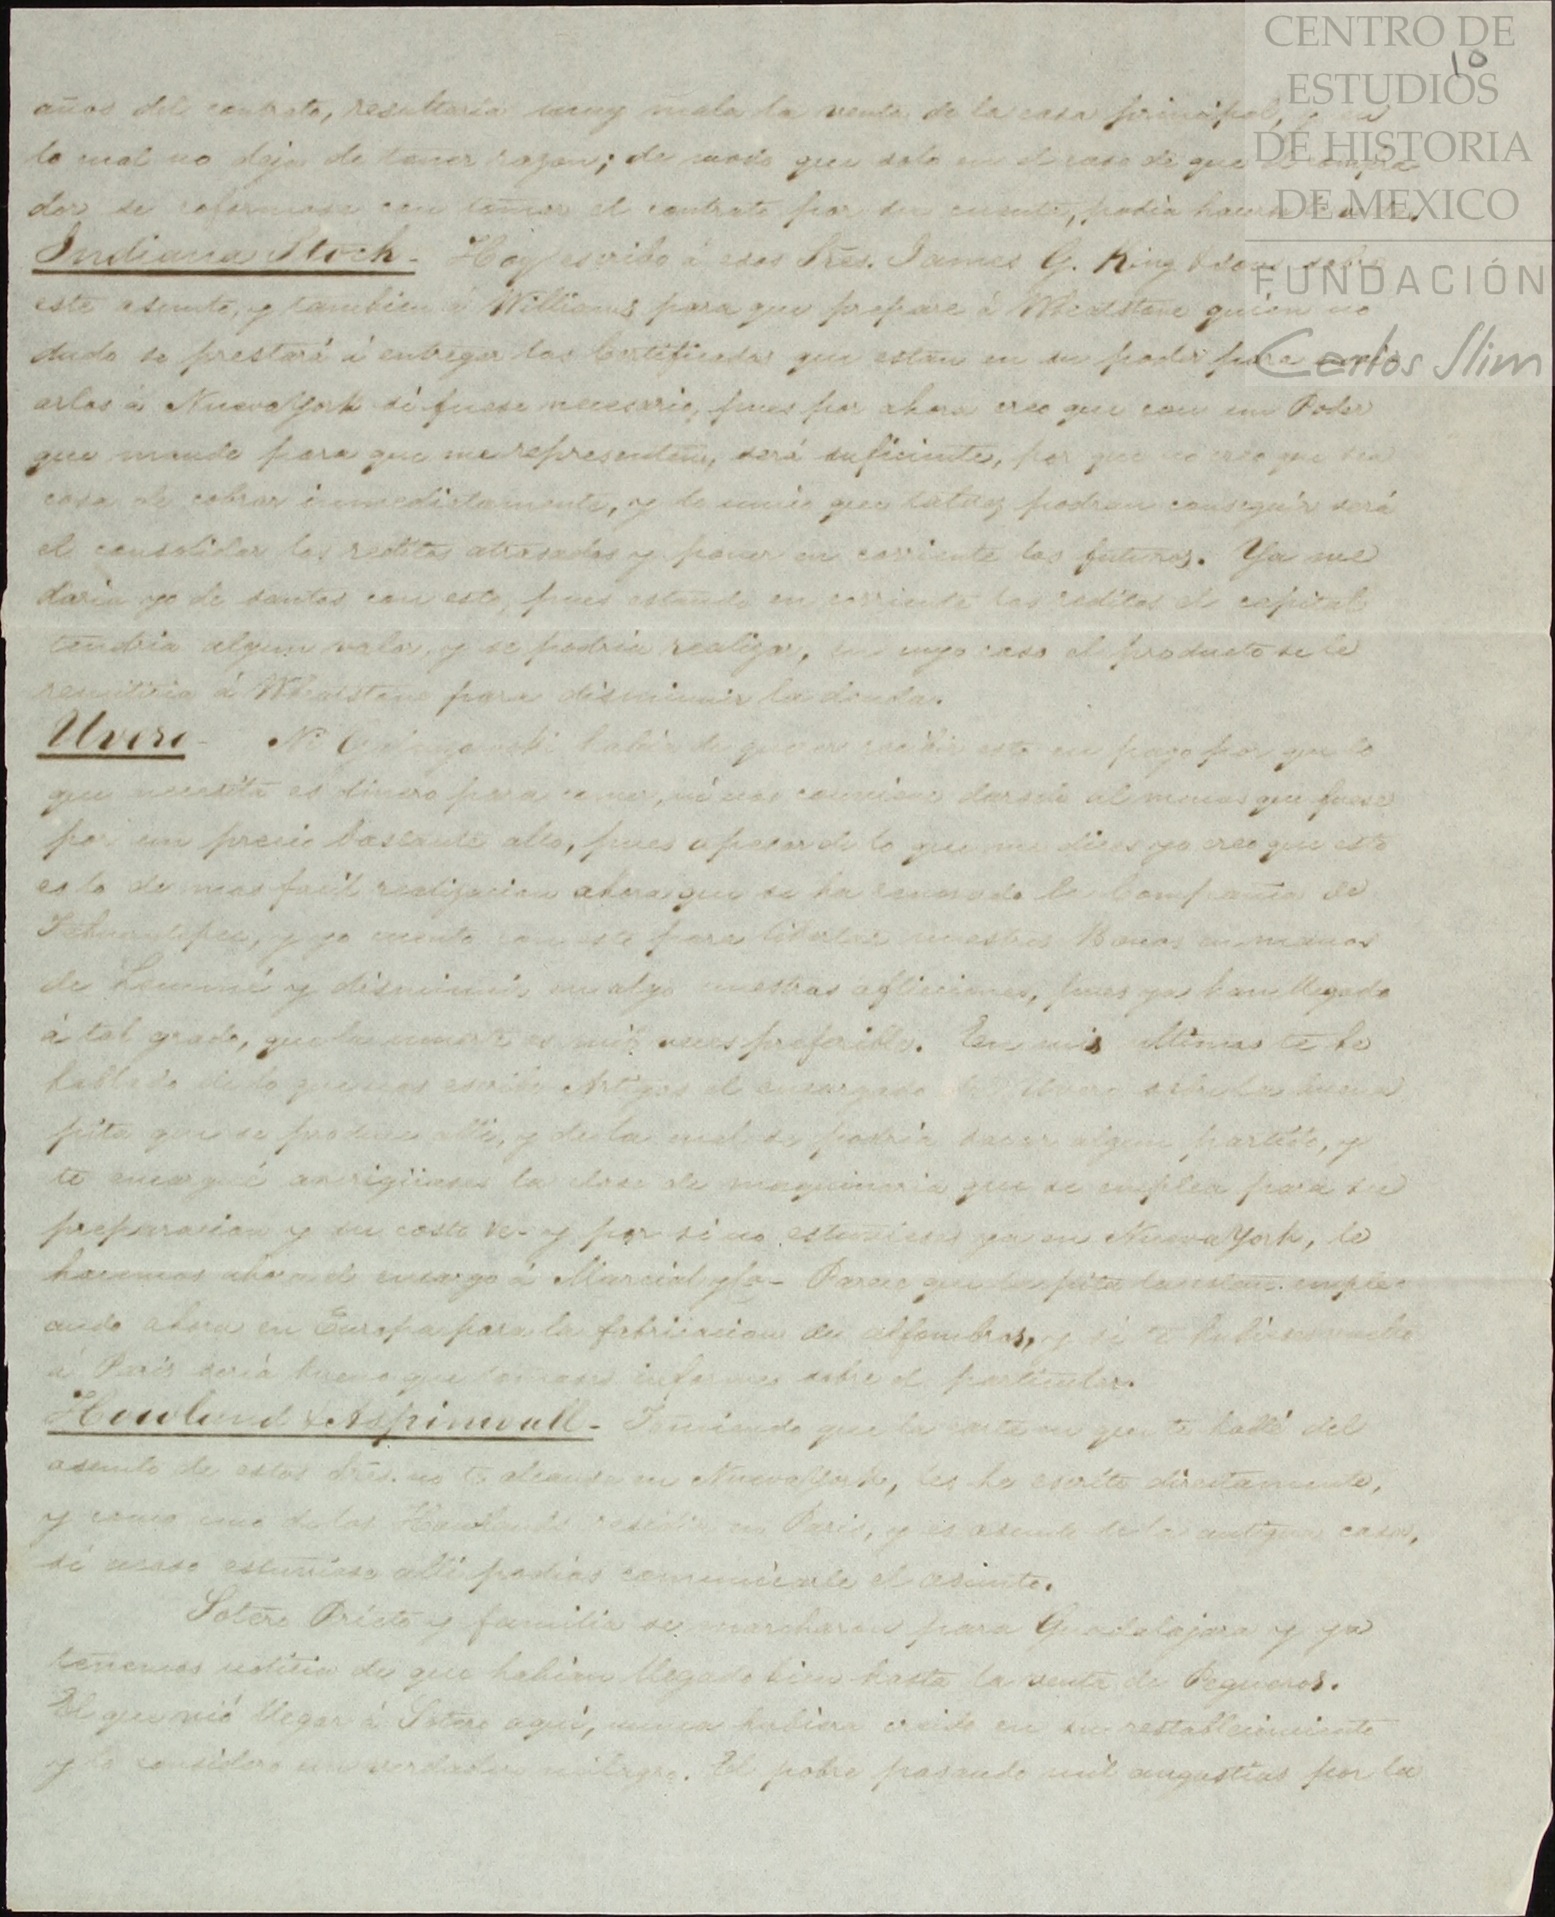 CENTRO DE
ESTUDIOS
DE HISTORIA
DE MEXICO
FUNDACIÓN
Carlos Slim
10
años del contrato, resultaria muy mala la venta de la casa principal, en
lo cual no deja de tener razon; de modo que solo en el caso de que el compra
dor se conformase con tomar el contrato por su cuenta, podia hacerse
Indiana Stock - Hoy escribo á esos Sres. James G. King & sons sobre
este asunto, y tambien á Williams para que prepare á Wheatstone quien no
dudo se prestará á entregar los Certificados que estan en su poder para envi
arlos á Nueva York si fuese necesario, pues por ahora creo que con un Poder
que mande para que me representen, será suficiente, por que no creo que sea
cosa de cobrar inmediatamente, y lo unico que talvez podran conseguir será
el consolidar los reditos atrasados y poner en corriente los futuros. Ya me
daria yo de santos con esto, pues estando en corriente los reditos el capital
tendria algun valor, y se podria realizar, en cuyo caso el producto se le
remitiria á Wheatstone para disminuir la deuda.
Uvero - Ni habia de querer recibir este en pago por que lo
que necesita es dinero para comer, ni nos conviene darselo al menos que fuese
por un precio bastante alto, pues apesar de lo que me dices yo creo que esto
es lo de mas facil realizacion ahora que se ha renovado la Compañia de
Tehuantepec, y yo cuento con este para libertar nuestros Bonos en manos
de y disminuir en algo nuestras aflicciones, pues ya han llegado
á tal grado, que la muerte es mil veces preferible. En mis ultimas te he
hablado de lo que nos escribe Artigas el encargado del Uvero sobre la buena
pita que se produce alli, y de la cual se podria sacar algun partido, y
te encargué averigüases la clase de maquinaria que se emplea para su
preparacion y su costo &c- y por si no estuvieses ya en Nueva York, le
hacemos ahora el encargo á Marcial y Co- Parece que la pita la estan emple
ando ahora en Europa para la fabricacion de alfombras, y si te hubieses vuelto
á Paris seria bueno que tomases informes sobre el particular.
Howland & Aspinwall - Temiendo que la carta en que te hablé del
asunto de estos Sres. no te alcanse en Nueva York, les he escrito directamente,
y como uno de los Howlands reside en Paris, y es asunto de la antigua casa,
si acaso estuviese alli podias comunicarle el asunto.
Sotero Prieto y familia se marcharon para Guadalajara y ya
tenemos noticia de que habian llegado bien hasta la venta de Pegueros.
El que vió llegar á Sotero aqui, nunca hubiera creido en su restablecimiento
y lo considera un verdadero milagro. El pobre pasando mil angustias por la